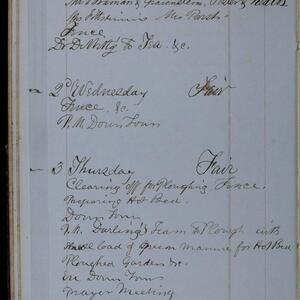 Mr & Gravenstein, &
Mrs Mr
Fence
Dr DeWitty to Tea. &c.
2d Wednesday Fair
Fence &c.
P.M. Down Town
3 Thursday Fair
Clearing off for Ploughing Fence.
Preparing Hot Bed
Down Town
P.M. Darling's Team to Plough with
load of Green Manure for Hot Bed
Ploughed Garden &c
Eve Down Town
Prayer Meeting